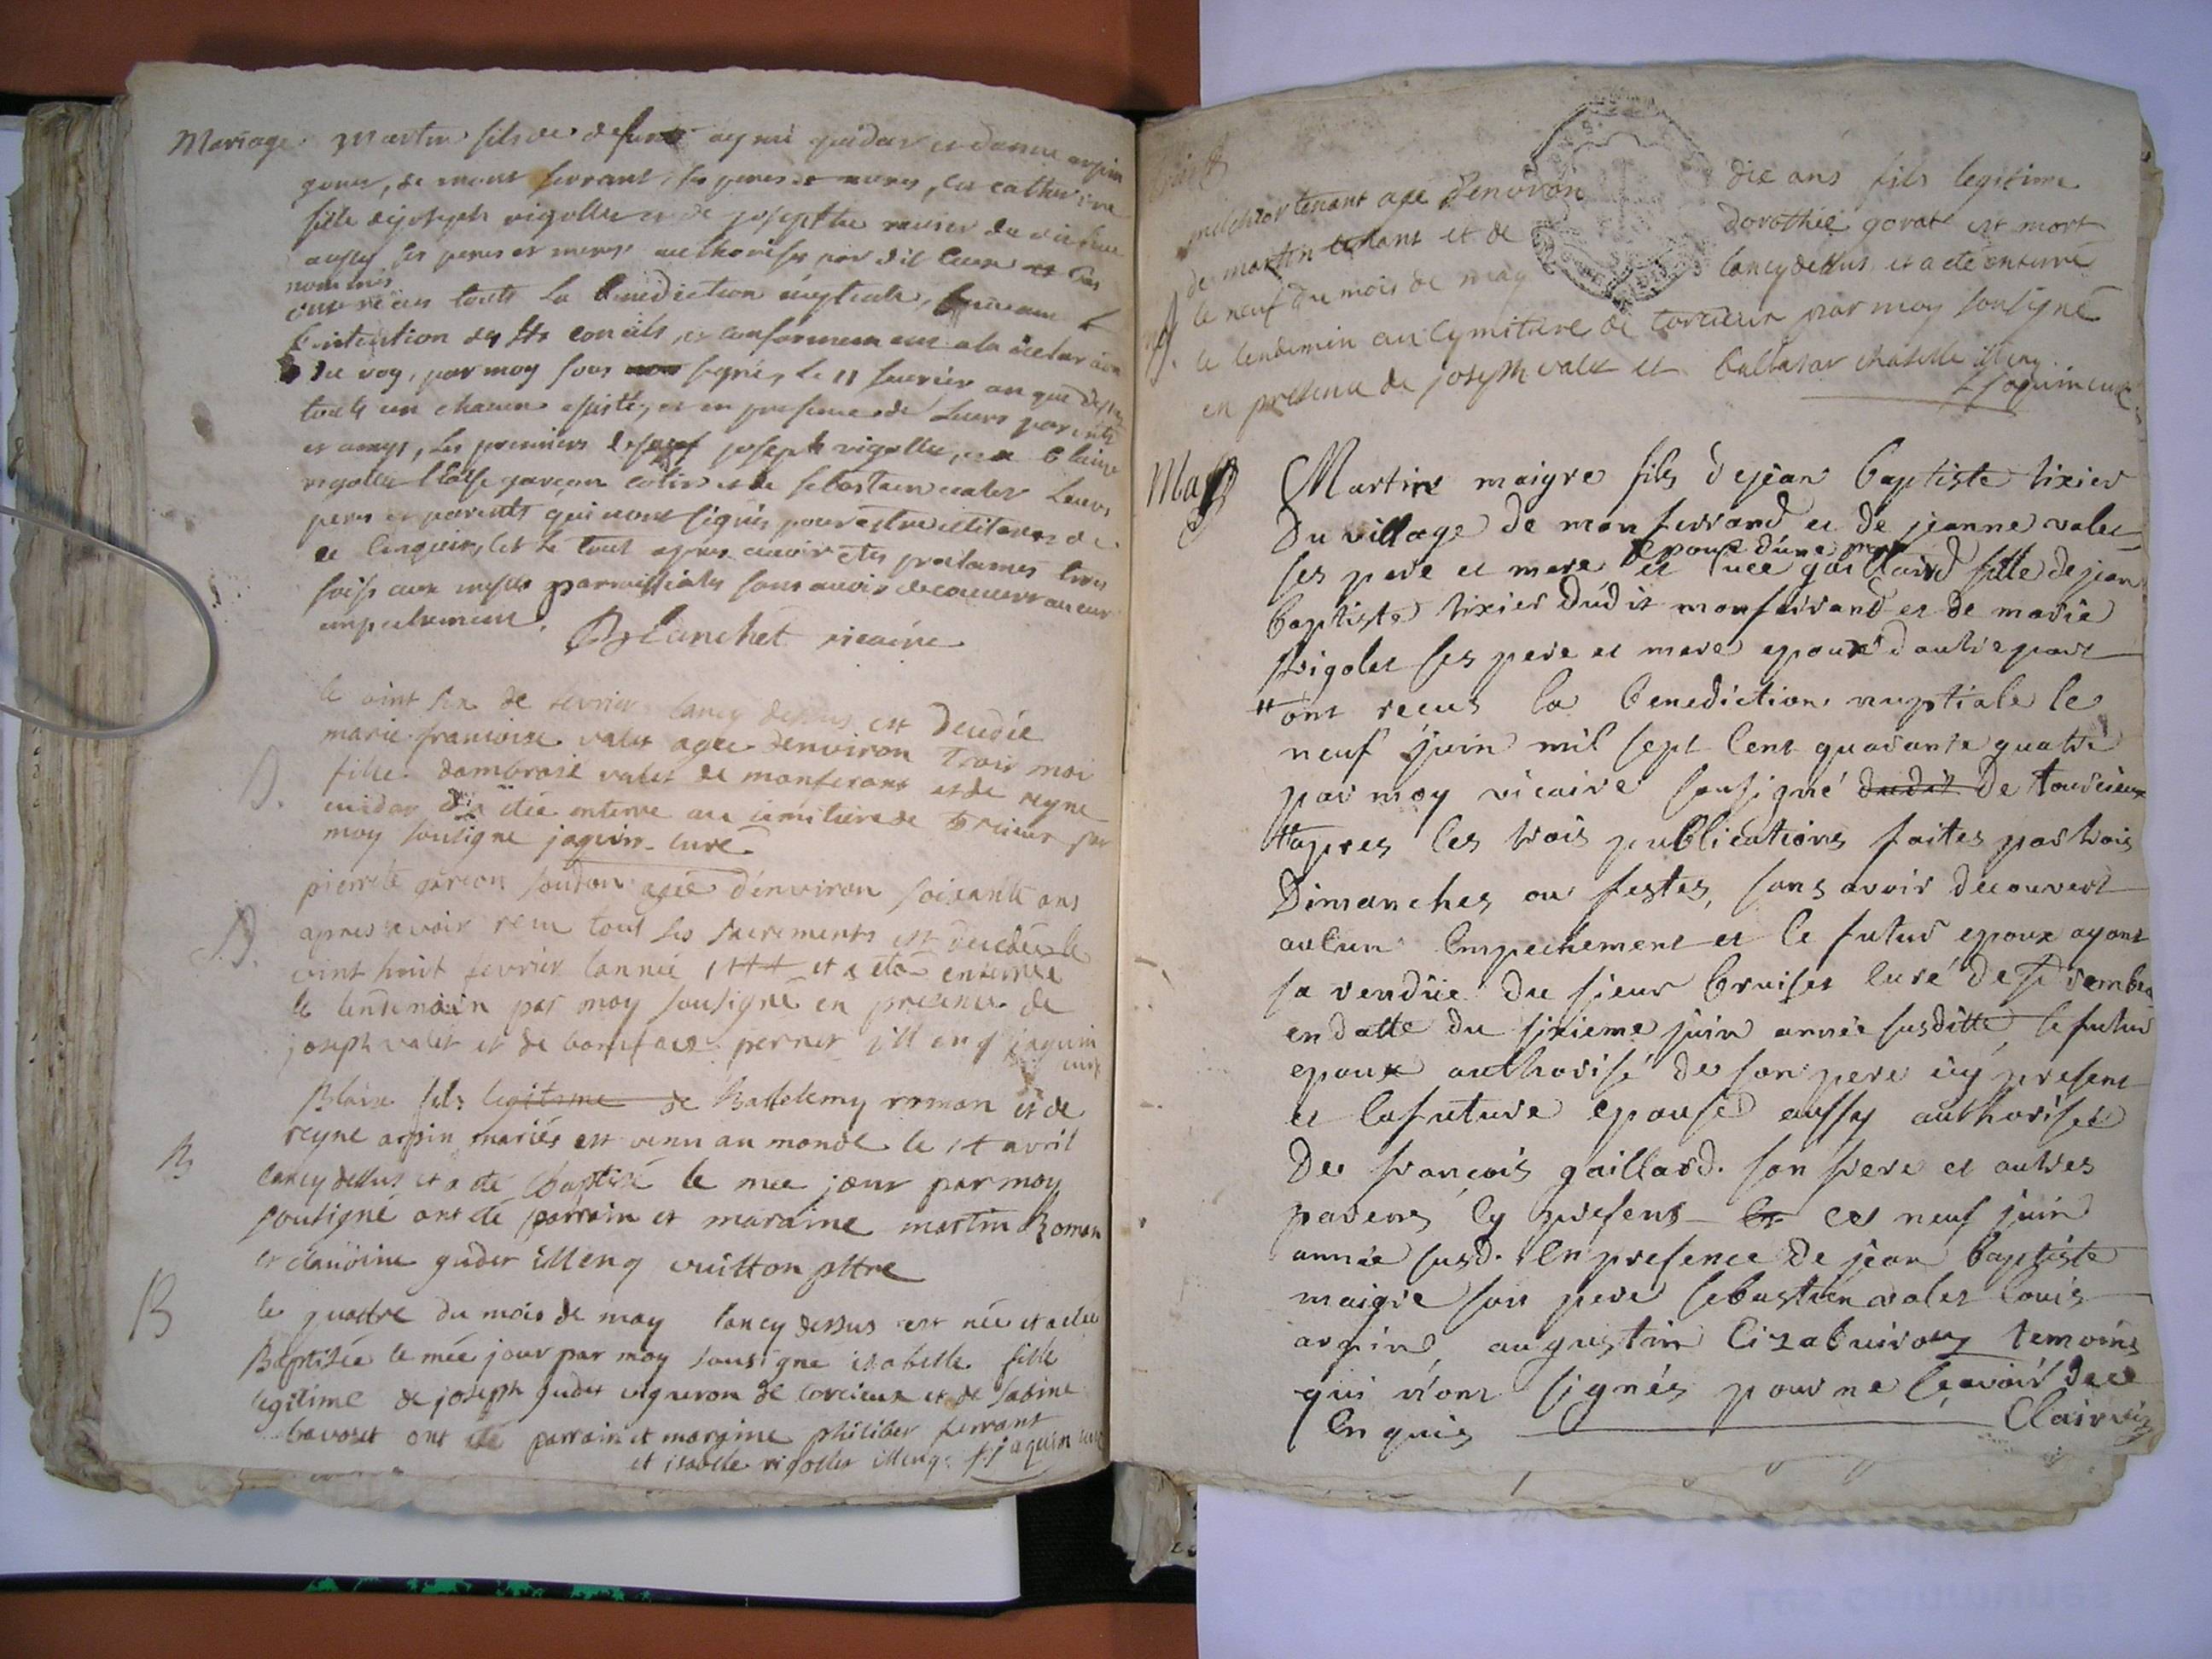 Mariage. Martin fils de defunt aymé guidar et danne arpin
gonet, de mont ferrant, ses peres et meres, et catherine
fille de joseph vigollet et de josepthe
aussy ses peres et meres authorises par dit
nommés
ont recus touts la benediction nuptiale, suivant
l'intention des sts concils, et conformement a la declaration
du roy, par moy sous signé, le 11 fevrier an que dessus
touts un chacun et en presence de leurs parents
et amys, les premiers joseph vigollet, et blaise
vigollet garçon et de sebastien valet leurs
peres et parents qui nont signés pour estre illiteres de
ce enquis, et le tout apres avoir etes proclamés trois
fois aux messes parroissiales sans avoir decouvert aucun
empechement. Blanchet vicaire
le vint six de fevrier lancy dessus est decedée
marie francoise valet agée denviron trois moi
D. fille dambrose valet de monferant et de reyne
cuidar et a étée enterré au cimitiere de torcieux par
moy soutigne jaquin curé
pierrete soudon agée d'environ soisante ans
D. apres avoir recu tout ses sacrements est decedée le
vint huit fevrier lannée 1744 et a eté enterrée
le lendemain par moy soutigné en presence de
joseph valet et de boniface perret ill enq jaquin
curé
Blaise fils legitime de Battelemy roman et de
reyne arpin mariés est venu au monde le 14 avril
B lancy dessus et a été baptisé le mee jour par moy
soutigné ont été parrain et maraine martin Roman
et claudine guder illenq vuitton pttre
B le quattre du mois de may lancy dessus est née et a etée
Baptisée le mée jour par moy sousigne isabelle fille
legitime de joseph guder vigneron de torcieux et de sabine
bavoset ont été parrain et margine philiber ferrant
et isabelle vigollet illenq. f. jaquin curé
melchior tenant age d'environ dix ans fils legitime
de martin tenant et de dorothée gorat est mort
le neuf du mois de may lancy dessus et a eté enterré
le lendemin au cymitiere de torcieux par moy soutigné
en presence de joseph valet et baltasar chatelle illenq.
f jaquin curé
Mag Martin maigre fils de jean baptiste tixier
du village de mon ferrand et de jeanne valet
epoux d'une part
ses pere et mere et lucе gaillard fille de jean
baptiste tixier dudit monferrand et de marie
vigolet ses pere et mere epouse d'autre part
ont recus la benediction nuptiale le
neuf juin mil sept cent quarante quatre
par moy vicaire sousigné dudit de tourcieux
apres les trois publications faites par trois
Dimanches ou festes, sans avoir decouvert
aucun empechement et le futur epoux ayant
sa rendüe du sieur bruiset curé de st rember
en datte du sixieme juin année susditte, le futur
epoux authorisé de son pere icy present
et la future epouse aussy authorisee
De françois gaillard. son frere et autres
parens cy presens ce neuf juin
année susd. en presence de jean baptiste
maigre son pere sebastien valet louis
arpin augustin temoins
qui n'ont signés pour ne sçavoir de ce
enquis Clair